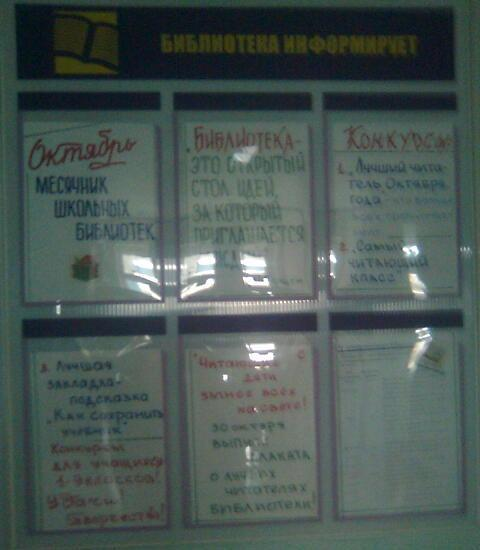 БИБЛИОТЕКА ИНФОРМИРУЕТ
Октябрь
МЕСЯЧНИК
ШКОЛЬНЫХ
БИБЛИОТЕК
БИБЛИОТЕКА-
ЭТО ОТКРЫТЫЙ
СТОЛ ИДЕЙ,
ЗА КОТОРЫЙ
ПРИГЛАШАЕТСЯ
КОНКУРСЫ:
1. „Лучший чита-
тель Октября
года - кто больше
всех
2. „Самый
читающий
класс"
3. Лучшая
закладка-
подсказка
„Как сохранить
учебник"
Конкурсы
для учащихся
1-9 классов!
Удачи
творчества!
"Читающие
дети
умнее всех
на свете!
30 октября
выпуск
плаката
о лучших
читателях
библиотеки!